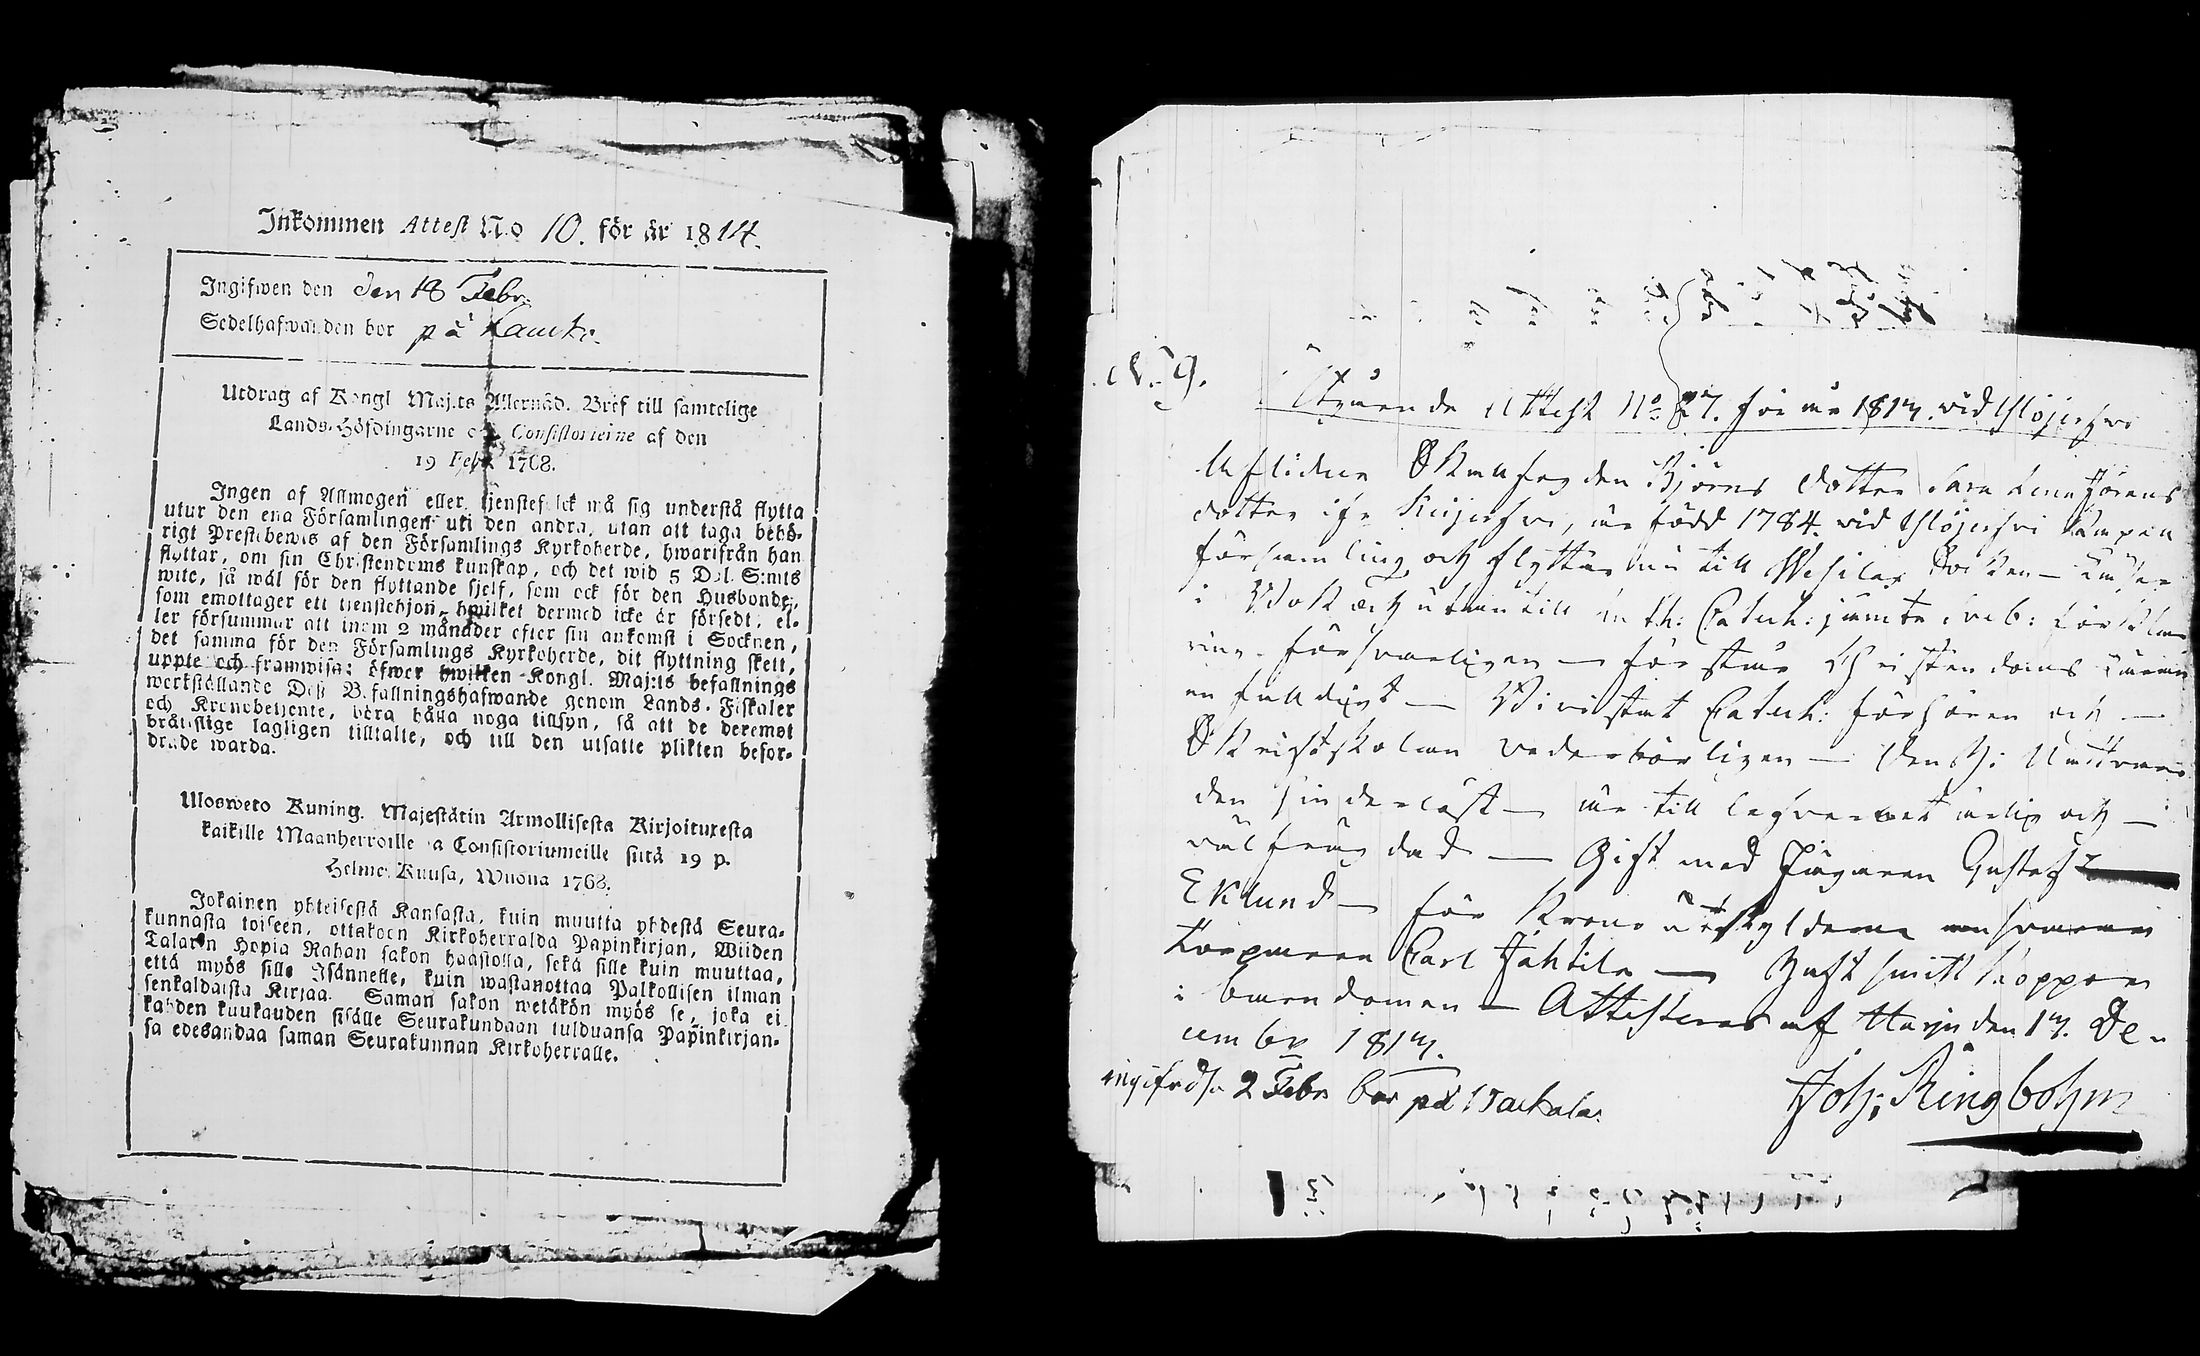 Inkommen Attest No 10. för år 1814.
Ingifwen den den 18 Febr.
Sedelhafwanden bor på
Utdrag af Kongl Maj:ts Allernåd. Bref till samtelige
Lands-Höfdingarne och Consistorierne af den
19 Febr. 1768.
Ingen af Allmogen eller tjenstefolck må sig understå flytta
utur den ena Församlingen uti den andra, utan att taga behö-
rigt Prestebewis af den Församlings Kyrkoherde, hwarifrån han
flyttar, om sin Christendoms kunskap, och det wid 5 Dal. S:mts
wite, så wäl för den flyttande sjelf, som ock för den Husbonde,
som emottager ett tjenstehjon, hwilket dermed icke är försedt, el-
ler försummar att inom 2 månader efter sin ankomst i Socknen,
det samma för den Församlings Kyrkoherde, dit flyttning skett,
uppte och framwisa: öfwer hwilken Kongl. Maj:ts befallnings
werkställande Dess Befallningshafwande genom Lands-Fiskaler
och Kronobetjente, böra hålla noga tillsyn, så att de deremot
brottslige lagligen tilltalte, och till den utsatte plikten befor-
drade warda.
Ulosweto Kuning. Majestätin Armollisesta Kirjoituxesta
kaikille Maanherroille ja Consistoriumeille siitä 19 p.
Helme-Kuusa, Wuona 1768.
Jokainen yhteisestä Kansasta, kuin muutta yhdestä Seura-
kunnasta toiseen, ottakoon Kirkoherralda Papinkirjan, Wiiden
Talarin Hopia Rahan sakon haastolla, sekä sille kuin muuttaa,
että myös sille Isännelle, kuin wastanottaa Palkollisen ilman
senkaldaista Kirjaa. Saman sakon wetäkön myös se, joka ei
kahden kuukauden sisälle Seurakundaan tulduansa Papinkirjan-
sa edesandaa saman Seurakunnan Kirkoherralle.
N:o 9.
Attest No 27. för år 1817. wid Ylöjerfwi
Aflidne den Björns dotter Sara Lena Jörans
dotter ifr. , är född 1784. wid Ylöjerfwi
församling och flyttar nu till Wesilax Socken
i Bok och utantill Luth: Catech: jämte
försvarligen förstår Christendoms
enfaldigt Catech: förhören och
Skriftskolan vederbörligen Den H: Nattvard
den hinderlöst är till lefvernet ärlig och
välfrägdad Gift med Jägaren Gustaf
Eklund för Krono utskylderne
Torparen Carl Jahtila Haft Koppor
i barndomen Attesteras af den 17. De-
cember 1817.
Joh: Ringbohm
2 Febr. bor på